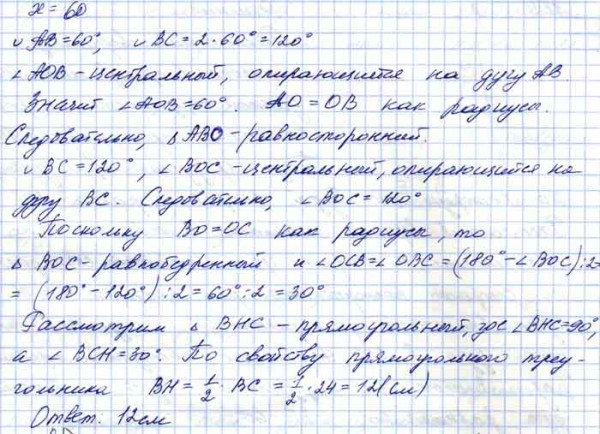 x = 60
◡ AB = 60°, ◡ BC = 2·60° = 120°
∠AOB – центральный, опирающийся на дугу AB.
Значит ∠AOB = 60°. AO = OB как радиусы.
Следовательно, △ ABO – равносторонний.
◡ BC = 120°, ∠ BOC – центральный, опирающийся на
дугу BC. Следовательно, ∠ BOC = 120°
Поскольку BO = OC как радиусы, то
△ BOC – равнобедренный и ∠OCB = ∠OBC = (180° – ∠BOC) : 2
= (180° – 120°) : 2 = 60° : 2 = 30°
Рассмотрим △ BHC – прямоугольный, где ∠BHC = 90°,
а ∠ BCH = 30°. По свойству прямоугольного треу-
гольника BH = 1/2 · BC = 1/2 · 24 = 12 (см)
Ответ. 12 см